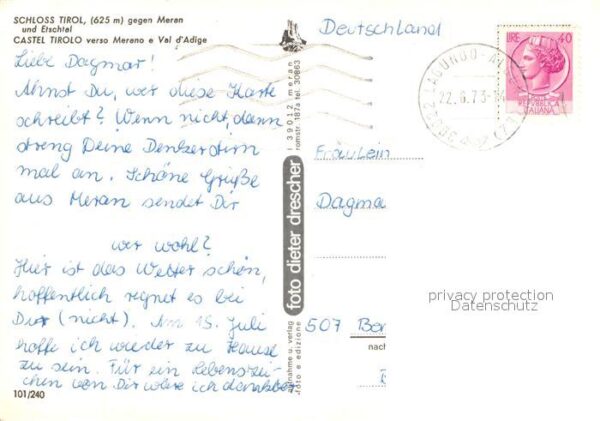 SCHLOSS TIROL, (625 m) gegen Meran
und Etschtal
CASTEL TIROLO verso Merano e Val d'Adige
Liebe Dagmar!
Ahnst Du, wer diese Karte
schreibt? Wenn nicht, dann
streng Deine Denkerstirn
mal an. Schöne Grüße
aus Meran sendet Dir
wer wohl?
Hier ist das Wetter schön,
hoffentlich regnet es bei
Dir (nicht). Am 15. Juli
hoffe ich wieder zu Hause
zu sein. Für ein Lebenszei-
chen von Dir wäre ich dankbar
101/240
foto dieter drescher
I 39012 meran
romstr. 187a tel. 30863
aufnahme u. verlag
foto e edizione
nach
Deutschland
LIRE 40
REPVBBLICA
ITALIANA
LAGUNDO
22.6.73
Fräulein
Dagma
507 Ber
privacy protection
Datenschutz